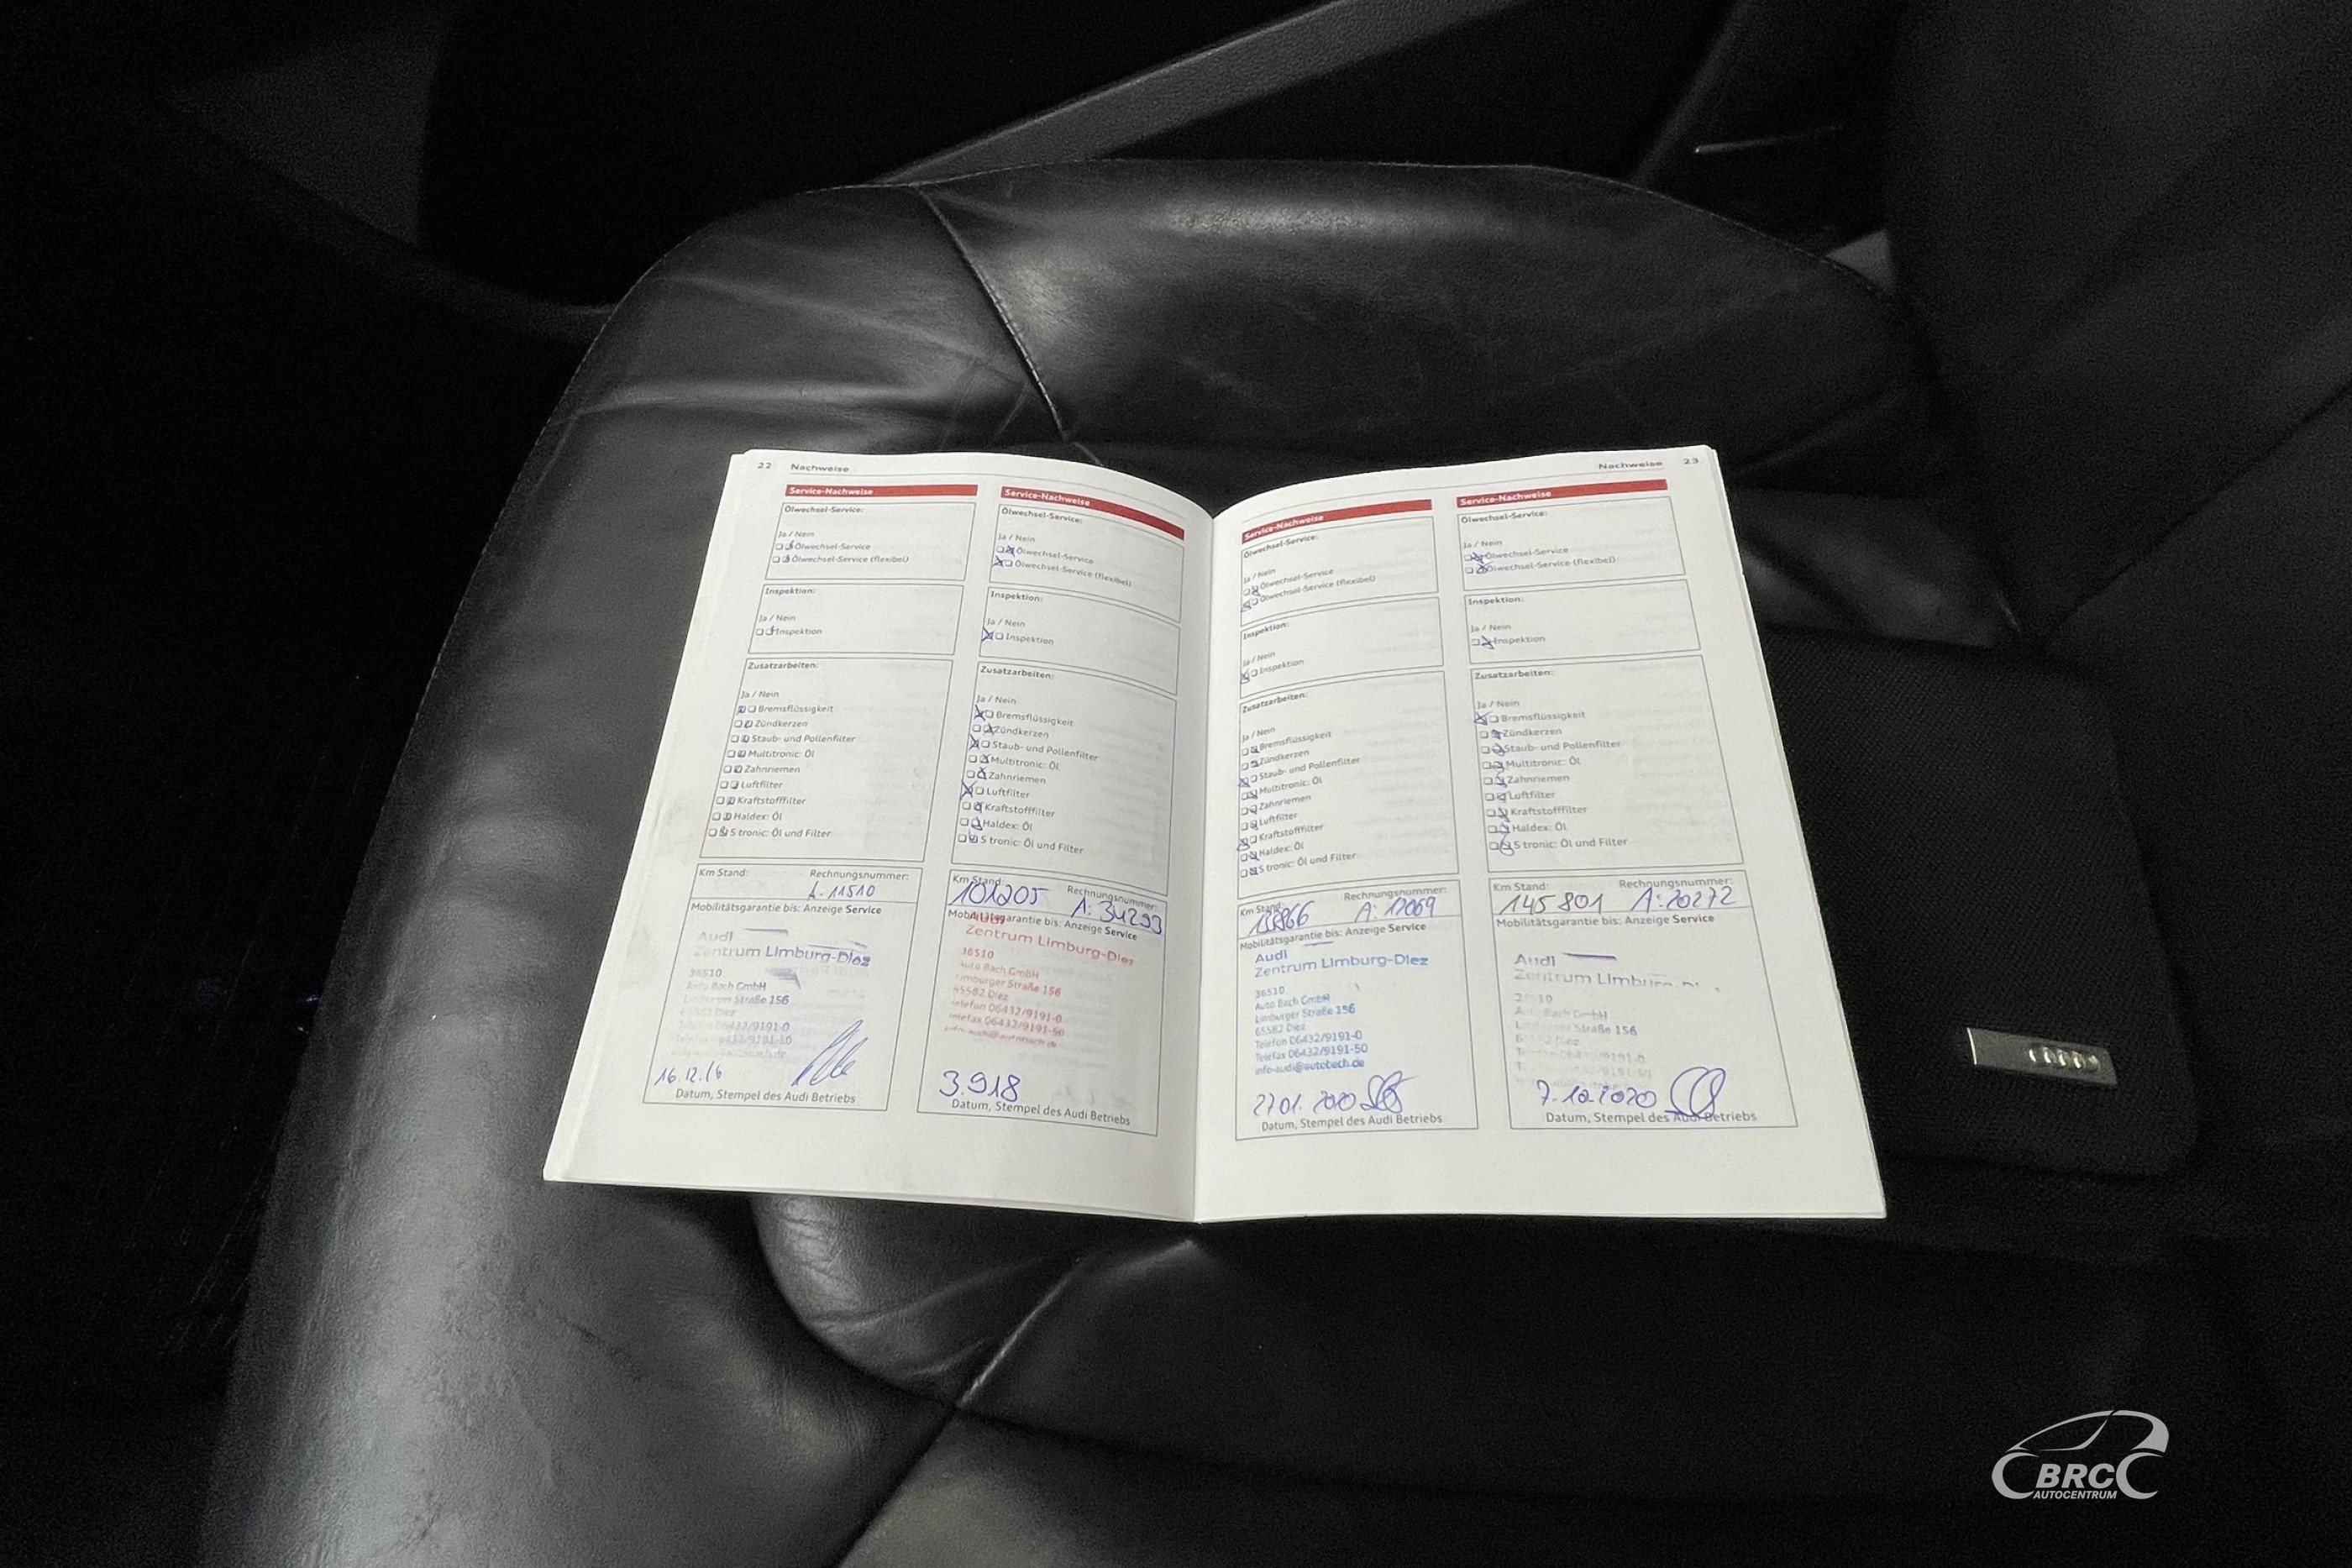 22 Nachweise
Service-Nachweise
Ölwechsel-Service:
Ja / Nein
Ölwechsel-Service
Ölwechsel-Service (flexibel)
Inspektion:
Ja / Nein
Inspektion
Zusatzarbeiten:
Ja / Nein
Bremsflüssigkeit
Zündkerzen
Staub- und Pollenfilter
Multitronic: Öl
Zahnriemen
Luftfilter
Kraftstofffilter
Haldex: Öl
S tronic: Öl und Filter
Km Stand: Rechnungsnummer:
A-11510
Mobilitätsgarantie bis: Anzeige Service
Audi
Zentrum Limburg-Diez
36510
Auto Bach GmbH
Limburger Straße 156
65582 Diez
Telefon 06432/9191-0
16.12.16
Datum, Stempel des Audi Betriebs
Service-Nachweise
Ölwechsel-Service:
Ja / Nein
Ölwechsel-Service
Ölwechsel-Service (flexibel)
Inspektion:
Ja / Nein
Inspektion
Zusatzarbeiten:
Ja / Nein
Bremsflüssigkeit
Zündkerzen
Staub- und Pollenfilter
Multitronic: Öl
Zahnriemen
Luftfilter
Kraftstofffilter
Haldex: Öl
S tronic: Öl und Filter
Km Stand: Rechnungsnummer:
101205 A: 34293
Mobilitätsgarantie bis: Anzeige Service
Audi
Zentrum Limburg-Diez
36510
Auto Bach GmbH
Limburger Straße 156
65582 Diez
Telefon 06432/9191-0
Telefax 06432/9191-50
info-audi@autobach.de
3.9.18
Datum, Stempel des Audi Betriebs
Nachweise 23
Service-Nachweise
Ölwechsel-Service:
Ja / Nein
Ölwechsel-Service
Ölwechsel-Service (flexibel)
Inspektion:
Ja / Nein
Inspektion
Zusatzarbeiten:
Ja / Nein
Bremsflüssigkeit
Zündkerzen
Staub- und Pollenfilter
Multitronic: Öl
Zahnriemen
Luftfilter
Kraftstofffilter
Haldex: Öl
S tronic: Öl und Filter
Km Stand: Rechnungsnummer:
A: 12069
Mobilitätsgarantie bis: Anzeige Service
Audi
Zentrum Limburg-Diez
36510
Auto Bach GmbH
Limburger Straße 156
65582 Diez
Telefon 06432/9191-0
Telefax 06432/9191-50
info-audi@autobach.de
27.01.2020
Datum, Stempel des Audi Betriebs
Service-Nachweise
Ölwechsel-Service:
Ja / Nein
Ölwechsel-Service
Ölwechsel-Service (flexibel)
Inspektion:
Ja / Nein
Inspektion
Zusatzarbeiten:
Ja / Nein
Bremsflüssigkeit
Zündkerzen
Staub- und Pollenfilter
Multitronic: Öl
Zahnriemen
Luftfilter
Kraftstofffilter
Haldex: Öl
S tronic: Öl und Filter
Km Stand: Rechnungsnummer:
145 801 A: 20272
Mobilitätsgarantie bis: Anzeige Service
Audi
Zentrum Limburg
Auto Bach GmbH
Straße 156
Datum, Stempel des Audi Betriebs
BRC
AUTOCENTRUM